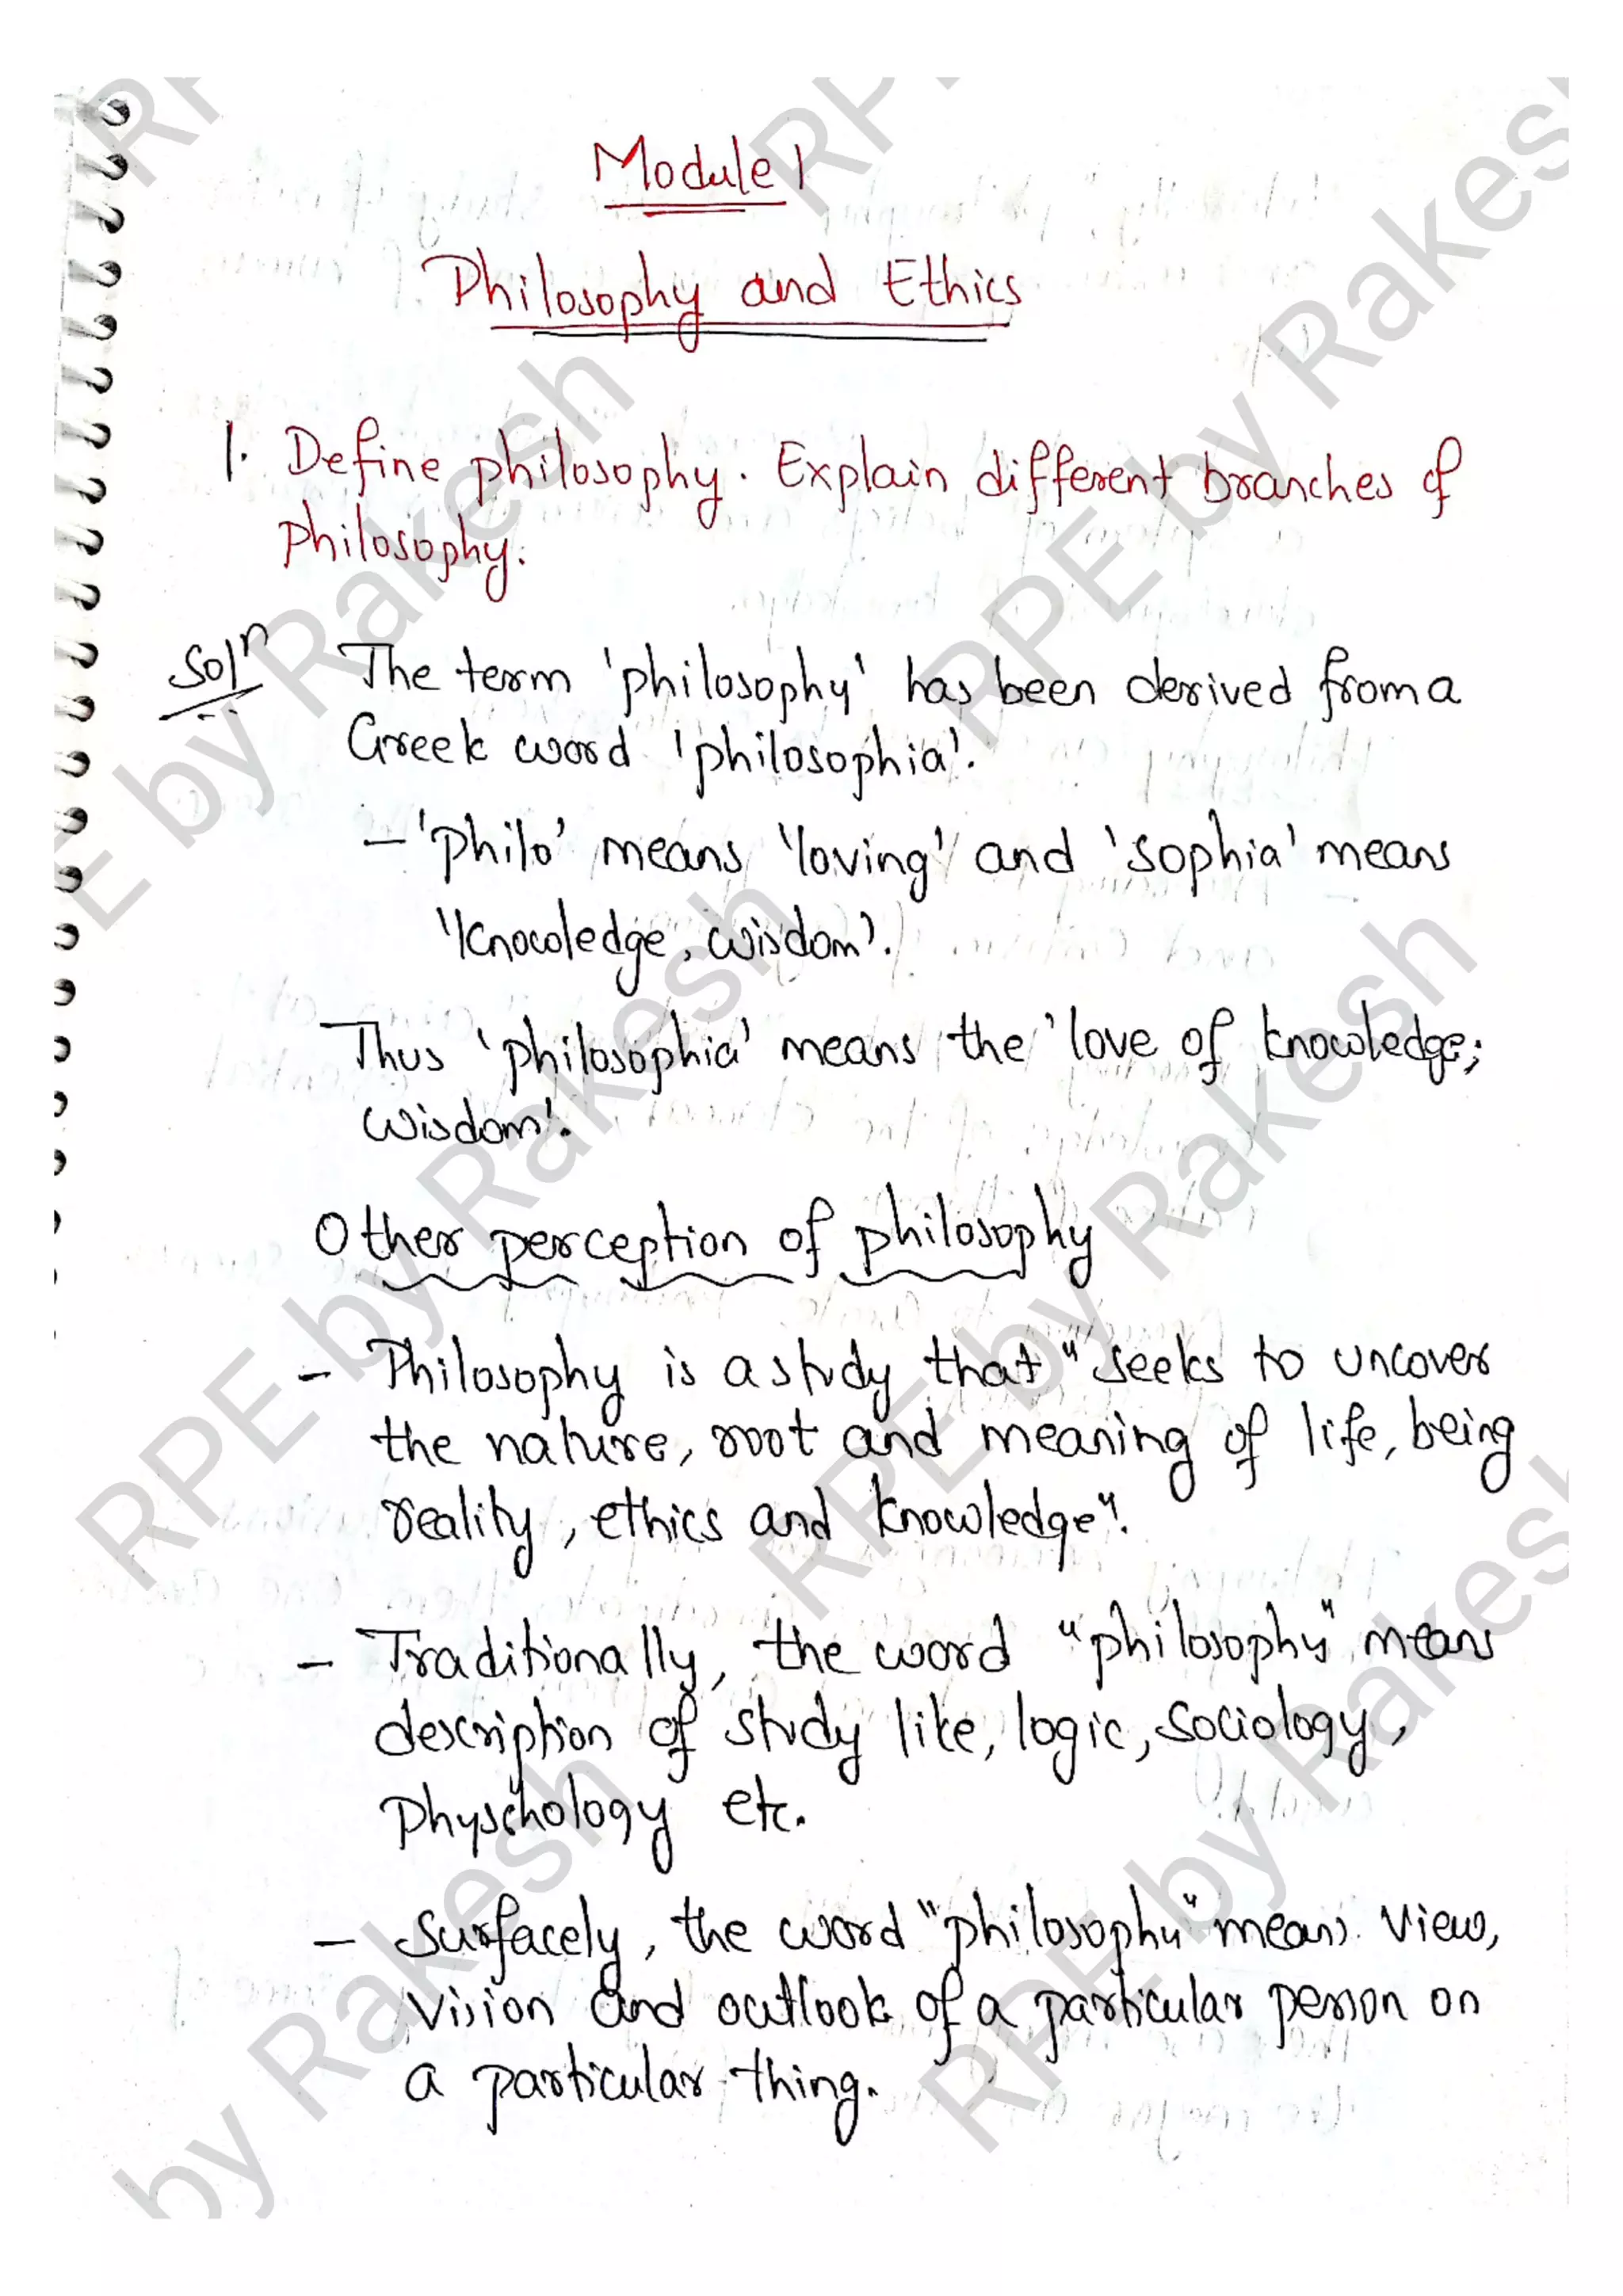 Module 1
Philosophy and Ethics
1. Define philosophy. Explain different branches of
philosophy.
Solⁿ The term 'philosophy' has been derived from a
Greek word 'philosophia'.
- 'Philo' means 'loving' and 'sophia' means
'Knowledge, wisdom'.
Thus 'philosophia' means the 'love of knowledge;
wisdom'.
Other perception of philosophy
- Philosophy is a study that "seeks to uncover
the nature, root and meaning of life, being
reality, ethics and knowledge".
- Traditionally, the word "philosophy" means
description of study like, logic, sociology,
Physchology etc.
- Surfacely, the word "philosophy" means view,
vision and outlook of a particular person on
a particular thing.
RPE by Rakesh